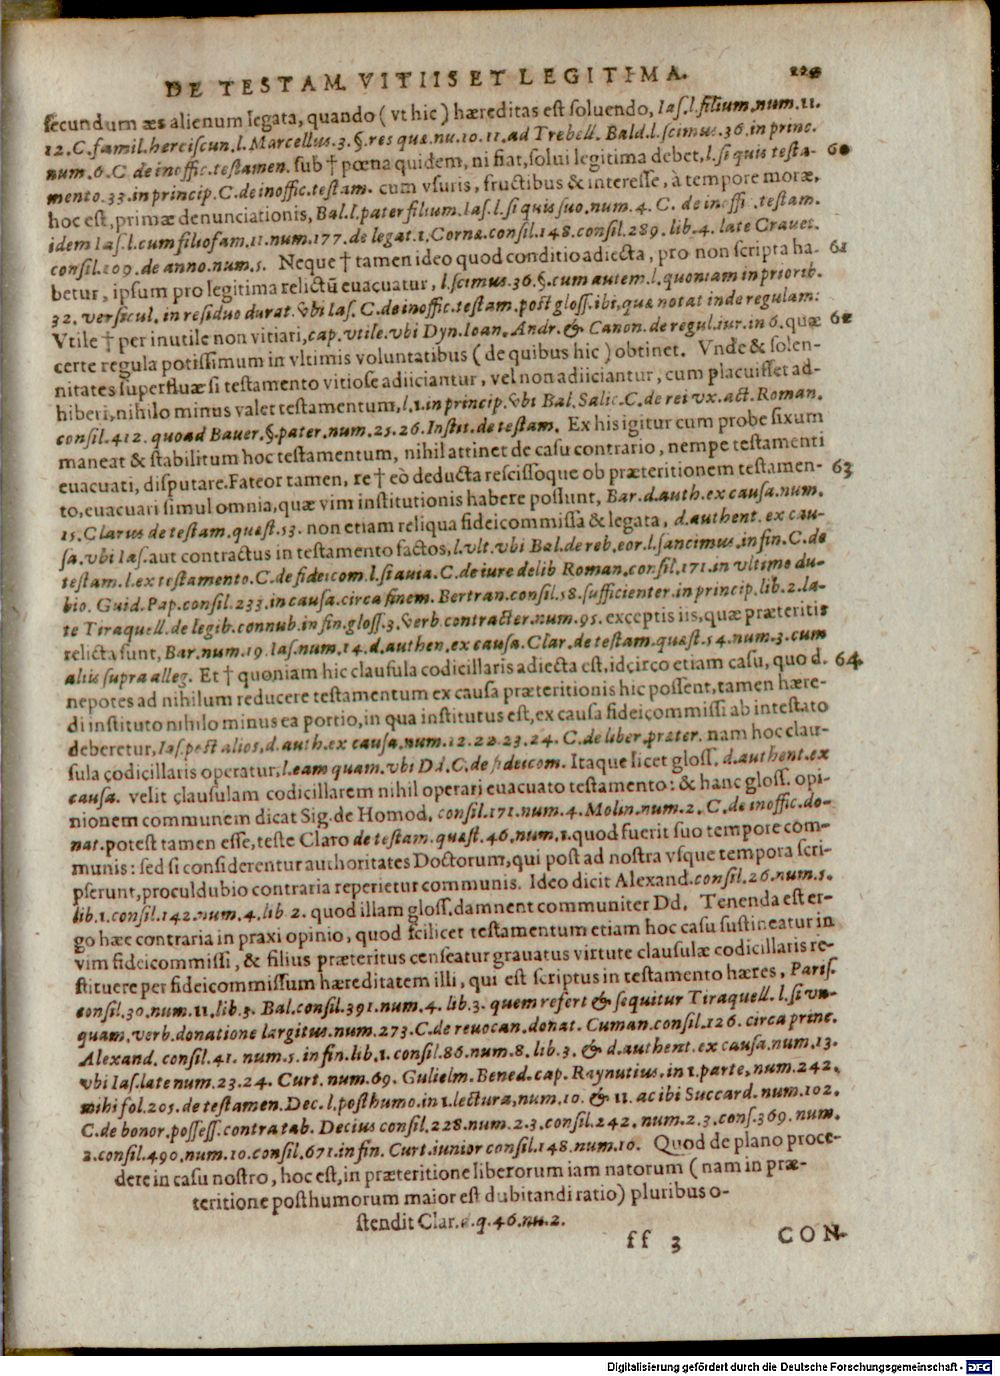 DE TESTAM. VITIIS ET LEGITIMA. 229
secundum æs alienum legata, quando (vt hic) hæreditas est soluendo, Ias.l.filium.num.11.
12.C.famil.herciscun.l.Marcellus.3.§.res quæ.nu.10.11.ad Trebell. Bald.l.scimus.36.in princ.
num.6.C de inoffic.testamen. sub † pœna quidem, ni fiat, solui legitima debet, l.si quis testa- 60
mento.33.in princip.C.de inoffic.testam. cum vsuris, fructibus & interesse, à tempore moræ,
hoc est, primæ denunciationis, Bal.l.pater filium.Ias.l.si quis suo.num.4. C. de inoffi .testam.
idem Ias.l.cum filiofam.11.num.177.de legat.1.Corne.consil.148.consil.289.lib.4. late Crauet.
consil.109.de anno.num.5. Neque † tamen ideo quod conditio adiecta, pro non scripta ha- 61
betur, ipsum pro legitima relictũ euacuatur, l.scimus.36.§.cum autem.l.quoniam in priorib.
32. versicul. in residuo durat.&vbi Ias. C.de inoffic.testam.post gloss.ibi, quæ notat inde regulam:
Vtile † per inutile non vitiari, cap.vtile.vbi Dyn.Ioan. Andr.& Canon.de regul.iur.in 6. quæ 62
certe regula potissimum in vltimis voluntatibus (de quibus hic) obtinet. Vnde & solen-
nitates superfluæ si testamento vitiose adiiciantur, vel non adiiciantur, cum placuisset ad-
hiberi, nihilo minus valet testamentum, l.1.in princip.&vbi Bal.Salic.C.de rei vx.act.Roman.
consil.412. quoad Bauer.§.pater.num.25.26.Instit.de testam. Ex his igitur cum probe fixum
maneat & stabilitum hoc testamentum, nihil attinet de casu contrario, nempe testamenti
euacuati, disputare. Fateor tamen, re † eò deducta rescissoque ob præteritionem testamen- 63
to, euacuari simul omnia, quæ vim institutionis habere possunt, Bar.d.auth.ex causa.num.
15.Clarus de testam.quæst.53. non etiam reliqua fideicommissa & legata, d.authent. ex cau-
sa.vbi Ias.aut contractus in testamento factos, l.vlt.vbi Bal.de reb.eor.l.sancimus.in fin.C.de
testam.l.ex testamento.C.de fideicom.l.si auia.C.de iure delib Roman.consil.171.in vltimo du-
bio. Guid.Pap.consil.233.in causa.circa finem. Bertran.consil.58.sufficienter.in princip.lib.2.la-
te Tiraquell.de legib.connub.in fin.gloss.3.&verb.contracter.num.95. exceptis iis, quæ præteritis
relicta sunt, Bar.num.19.Ias.num.14.d.authen.ex causa.Clar.de testam.quæst.54.num.3.cum
aliis supra alleg. Et † quoniam hic clausula codicillaris adiecta est, idcirco etiam casu, quo d. 64
nepotes ad nihilum reducere testamentum ex causa præteritionis hic possent, tamen hære-
di instituto nihilo minus ea portio, in qua institutus est, ex causa fideicommissi ab intestato
deberetur, Ias.post alios, d.auth.ex causa.num.12.22.23.24. C.de liber.præter. nam hoc clau-
sula codicillaris operatur, l.eam quam.vbi Dd.C.de fideicom. Itaque licet gloss. d.authent.ex
causa. velit clausulam codicillarem nihil operari euacuato testamento: & hanc gloss. opi-
nionem communem dicat Sig. de Homod. consil.171.num.4.Molin.num.2. C.de inoffic.do-
nat.potest tamen esse, teste Claro de testam.quæst.46.num.1.quod fuerit suo tempore com-
munis: sed si considerentur authoritates Doctorum, qui post ad nostra vsque tempora scri-
pserunt, proculdubio contraria reperietur communis. Ideo dicit Alexand.consil.26.num.5.
lib.1.consil.142.num.4.lib 2. quod illam gloss.damnent communiter Dd. Tenenda est er-
go hæc contraria in praxi opinio, quod scilicet testamentum etiam hoc casu sustineatur in
vim fideicommissi, & filius præteritus censeatur grauatus virtute clausulæ codicillaris re-
stituere per fideicommissum hæreditatem illi, qui est scriptus in testamento hæres, Paris.
consil.30.num.11.lib.3. Bal.consil.391.num.4. lib.3. quem refert & sequitur Tiraquell. l.si vn-
quam.verb.donatione largitus.num.273.C.de reuocan.donat. Cuman.consil.126. circa princ.
Alexand. consil.41. num.5.in fin.lib.1.consil.86.num.8.lib.3. & d.authent.ex causa.num.13.
vbi Ias.late num.23.24. Curt.num.69. Gulielm.Bened.cap.Raynutius.in 1.parte, num.242.
mihi fol.205.de testamen.Dec.l.posthumo.in 1.lectura, num.10. & 11. ac ibi Succard.num.102.
C.de bonor.possess.contra tab. Decius consil.228.num.2.3.consil.242.num.2.3.cons.369.num.
2.consil.490.num.10.consil.671.in fin. Curt.iunior consil.148.num.10. Quod de plano proce-
dere in casu nostro, hoc est, in præteritione liberorum iam natorum (nam in præ-
teritione posthumorum maior est dubitandi ratio) pluribus o-
stendit Clar.e.q.46.nu.2.
ff 3 CON-
Digitalisierung gefördert durch die Deutsche Forschungsgemeinschaft - DFG